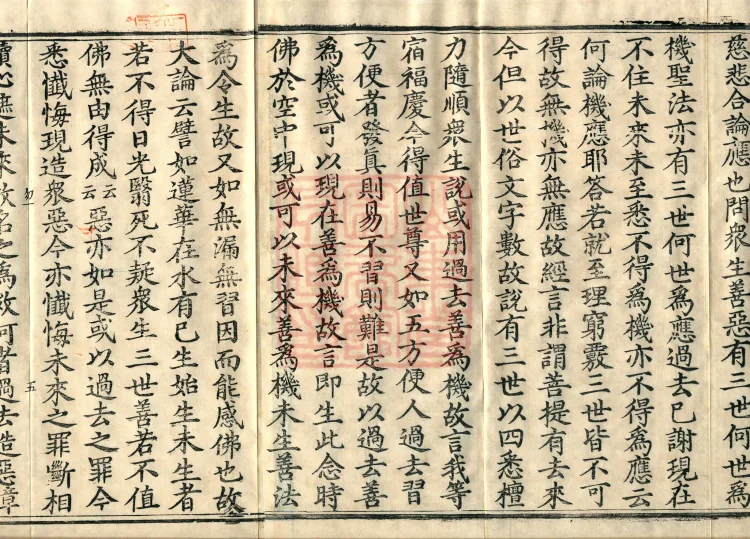 慈悲合論應也問衆生善惡有三世何世爲
機聖法亦有三世何世爲應過去已謝現在
不住未來未至悉不得爲機亦不得爲應云
何論機應耶答若就至理窮覈三世皆不可
得故無機亦無應故經言非謂菩提有去來
今但以世俗文字數故說有三世以四悉檀
力隨順衆生說或用過去善爲機故言我等
宿福慶今得值世尊又如五方便人過去習
方便者發眞則易不習則難是故以過去善
爲機或可以現在善爲機故言即生此念時
佛於空中現或可以未來善爲機未生善法
爲令生故又如無漏無習因而能感佛也故
大論云譬如蓮華在水有已生始生未生者
若不得日光翳死不疑衆生三世善若不值
佛無由得成云云惡亦如是或以過去之罪今
悉懺悔現造衆惡今亦懺悔未來之罪斷相
五
續心遮未來故名之爲救何者過去造惡障